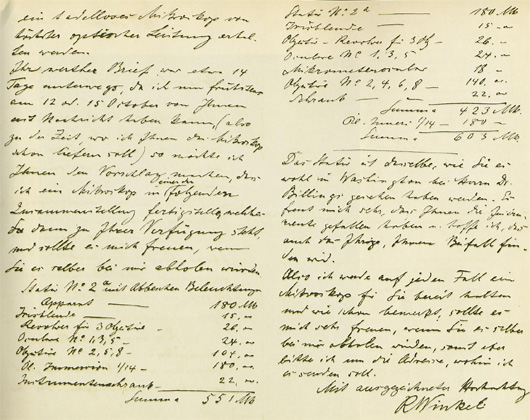 ein tadelloses Mikroskop von
höchster optischer Leistung erhal-
ten werden.
Ihr werther Brief war etwa 14
Tage unterwegs, da ich nun frühstens
am 12 od. 15 October von Ihnen
erst Nachricht haben kann, (also
zu der Zeit, wo ich Ihnen das Mikroskop
schon liefern soll) so möchte ich
Ihnen den Vorschlag machen, dass
ich ein Mikroskop in folgender
Zusammenstellung fertigstelle, welches
Ihnen dann zu Ihrer Verfügung steht
und sollte es mich freuen, wenn
Sie es selber bei mir abholen würden.
Stativ No. 2a mit Abbeschen Beleuchtungs-
Apparat — 180 Mk
Irisblende — 15 "
Revolver für 3 Objective — 26 "
Oculare No. 1, 3, 5 — 24 "
Objective No. 2, 5, 8 — 104 "
Öl. Immersion 1/14 — 180 "
Instrumentenschrank — 22 "
Summa 551 Mk
Stativ No. 2a — 180 Mk
Irisblende — 15 "
Objectiv-Revolver für 3 Obj — 26 "
Oculare No. 1, 3, 5 — 24 "
Micrometerocular — 18 "
Objective No. 2, 4, 6, 8 — 140 "
Schrank — 22 "
Summa 423 Mk
Öl. Immers. 1/14 — 180 —
Summa 603 Mk
Das Stativ ist dasselbe, wie Sie es
wohl in Washington bei Herrn Dr.
Billings gesehen haben werden. Es
freut mich sehr, dass Ihnen die
gefallen haben u. hoffe ich, dass
auch das Ihrige, Ihren Beifall fin-
den wird.
Also ich werde auf jeden Fall ein
Mikroskop für Sie bereit halten
und wie schon bemerkt, sollte es
mich sehr freuen, wenn Sie es selber
bei mir abholen würden, sonst aber
bitte ich um die Adresse, wohin ich
es senden soll.
Mit ausgezeichneter Hochachtung
R. Winkel